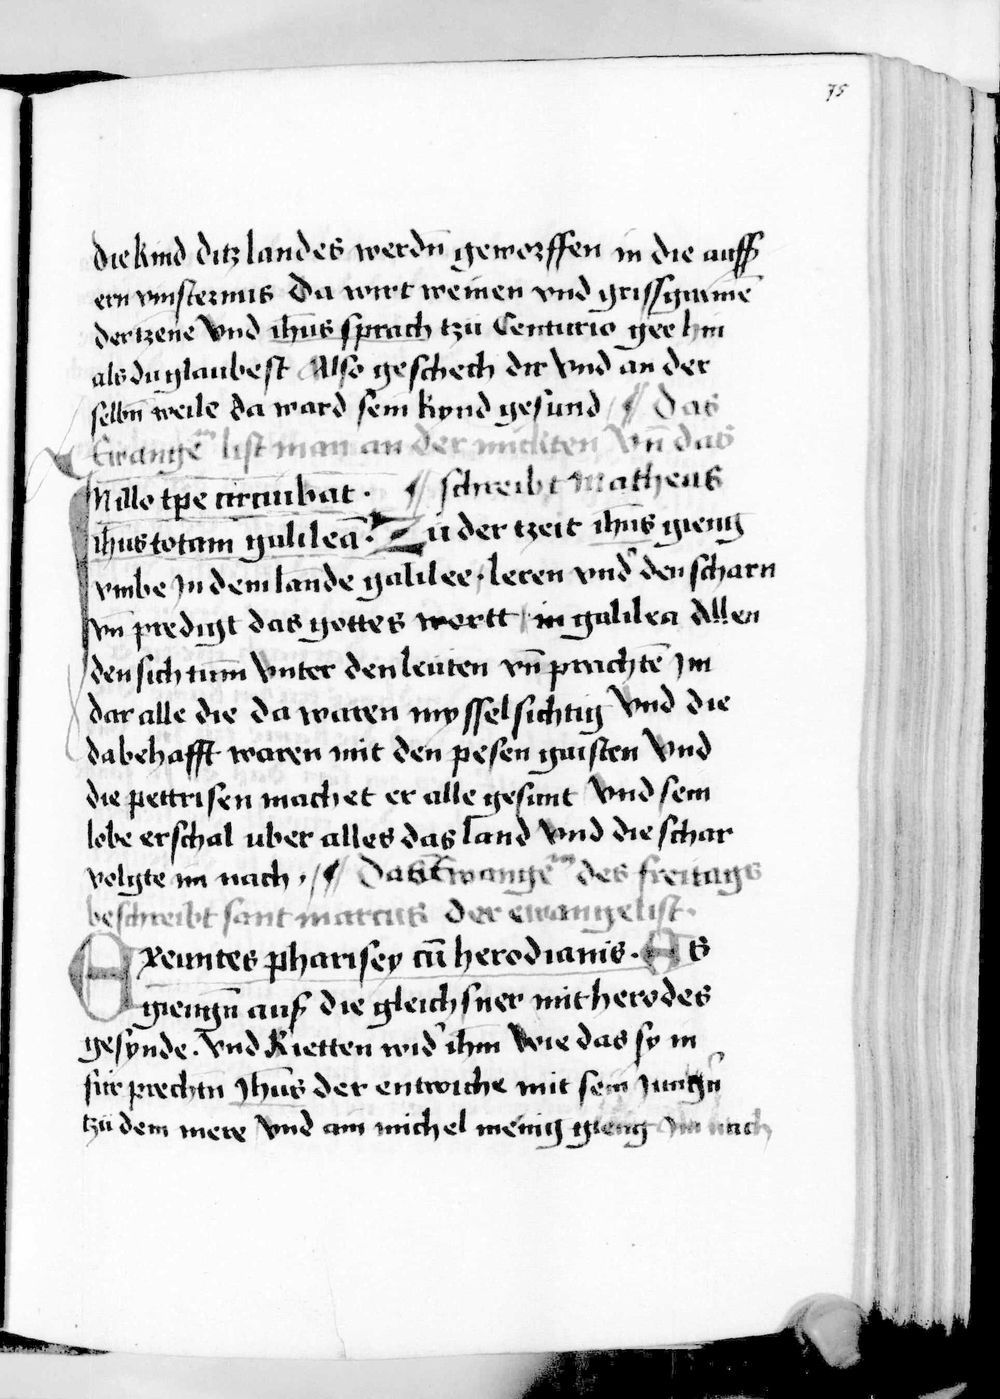 75
die kind ditz landes werdn̄ geworffen in die auss
ern vinsternus Da wirt weinen vnd grissgramē
der tzene Vnd ih̄us sprach tzu Centurio gee hin
als du glaubest Also geschech dir Vnd an der
selbn̄ weile da ward sein kynd gesund ¶ Das
Ewangem̄ list man an der mickten Vn̄ das
Nillo tpe circuibat · ¶ schreibt Matheus
ih̄us totam galileā · Zu der tzeit ih̄us gieng
vmbe Jn dem lande galilee · leren vnd den scharn
vn̄ predigt das gottes wortt in galilea Allen
den sichtum Vnter den leuten vn̄ prachtē Jm
dar alle die da waren mysselsichtig Vnd die
da behafft waren mit den pesen gaisten Vnd
die pettrisen machet er alle gesunt Vnd sein
lobe erschal uber alles das land Vnd die schar
volgte im nach · ¶ Das Ewangem̄ des freitags
beschreibt sant marcus der ewangelist ·
Exeuntes pharisey cū herodianis · Es
giengn̄ auß die gleichsner mit herodes
gesynde · Vnd Rietten wid ihm Wie das sy in
für prechtn̄ Jh̄us der entwiche mit sein Jungn̄
tzu dem mere Vnd ain michel menig gieng Jm nach